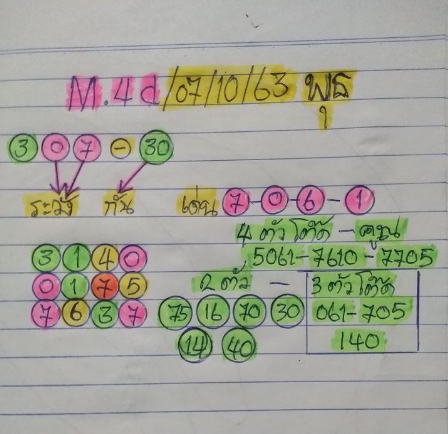 M.4d/07/10/63 พุธ
3 0 7 - 30
ระวัง กัน เด่น 7-0-6-1
4 ตัวโต๊ด - คูณ
3 1 4 0 5061-7610-7705
0 1 7 5 2 ตัว - 3 ตัวโต๊ด
7 6 3 7 75 16 70 30 061-705
14 40 140